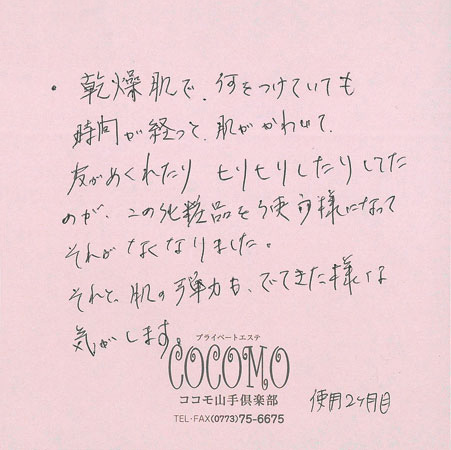 ・乾燥肌で、何をつけていても
時間が経って、肌がかわいて、
皮がめくれたり ヒリヒリしたりしてた
のが、この化粧品を使う様になって
それがなくなりました。
それと、肌の弾力も、でてきた様な
気がします。
プライベートエステ
COCOMO
ココモ山手倶楽部
TEL・FAX(0773)75-6675
使用2ヶ月目